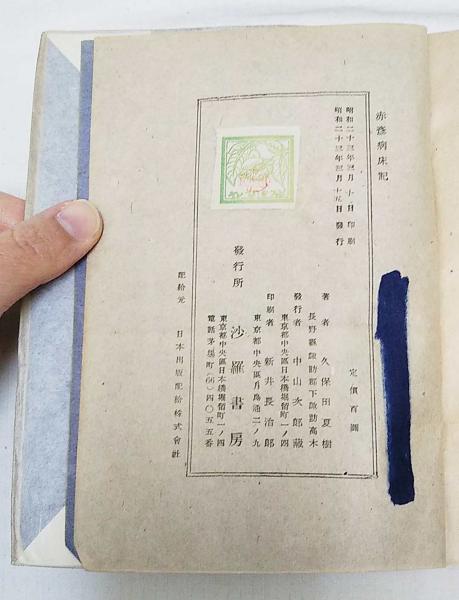 赤彦病床記
昭和二十三年三月十日 印刷
昭和二十三年三月十五日 發行
定價百圓
著者 久保田夏樹
長野縣諏訪郡下諏訪高木
發行者 中山次郎藏
東京都中央區日本橋堀留町一ノ四
印刷者 新井長治郎
東京都中央區月島通二ノ九
發行所 沙羅書房
東京都中央區日本橋堀留町一ノ四
電話茅場町(66)四〇五五番
配給元 日本出版配給株式會社